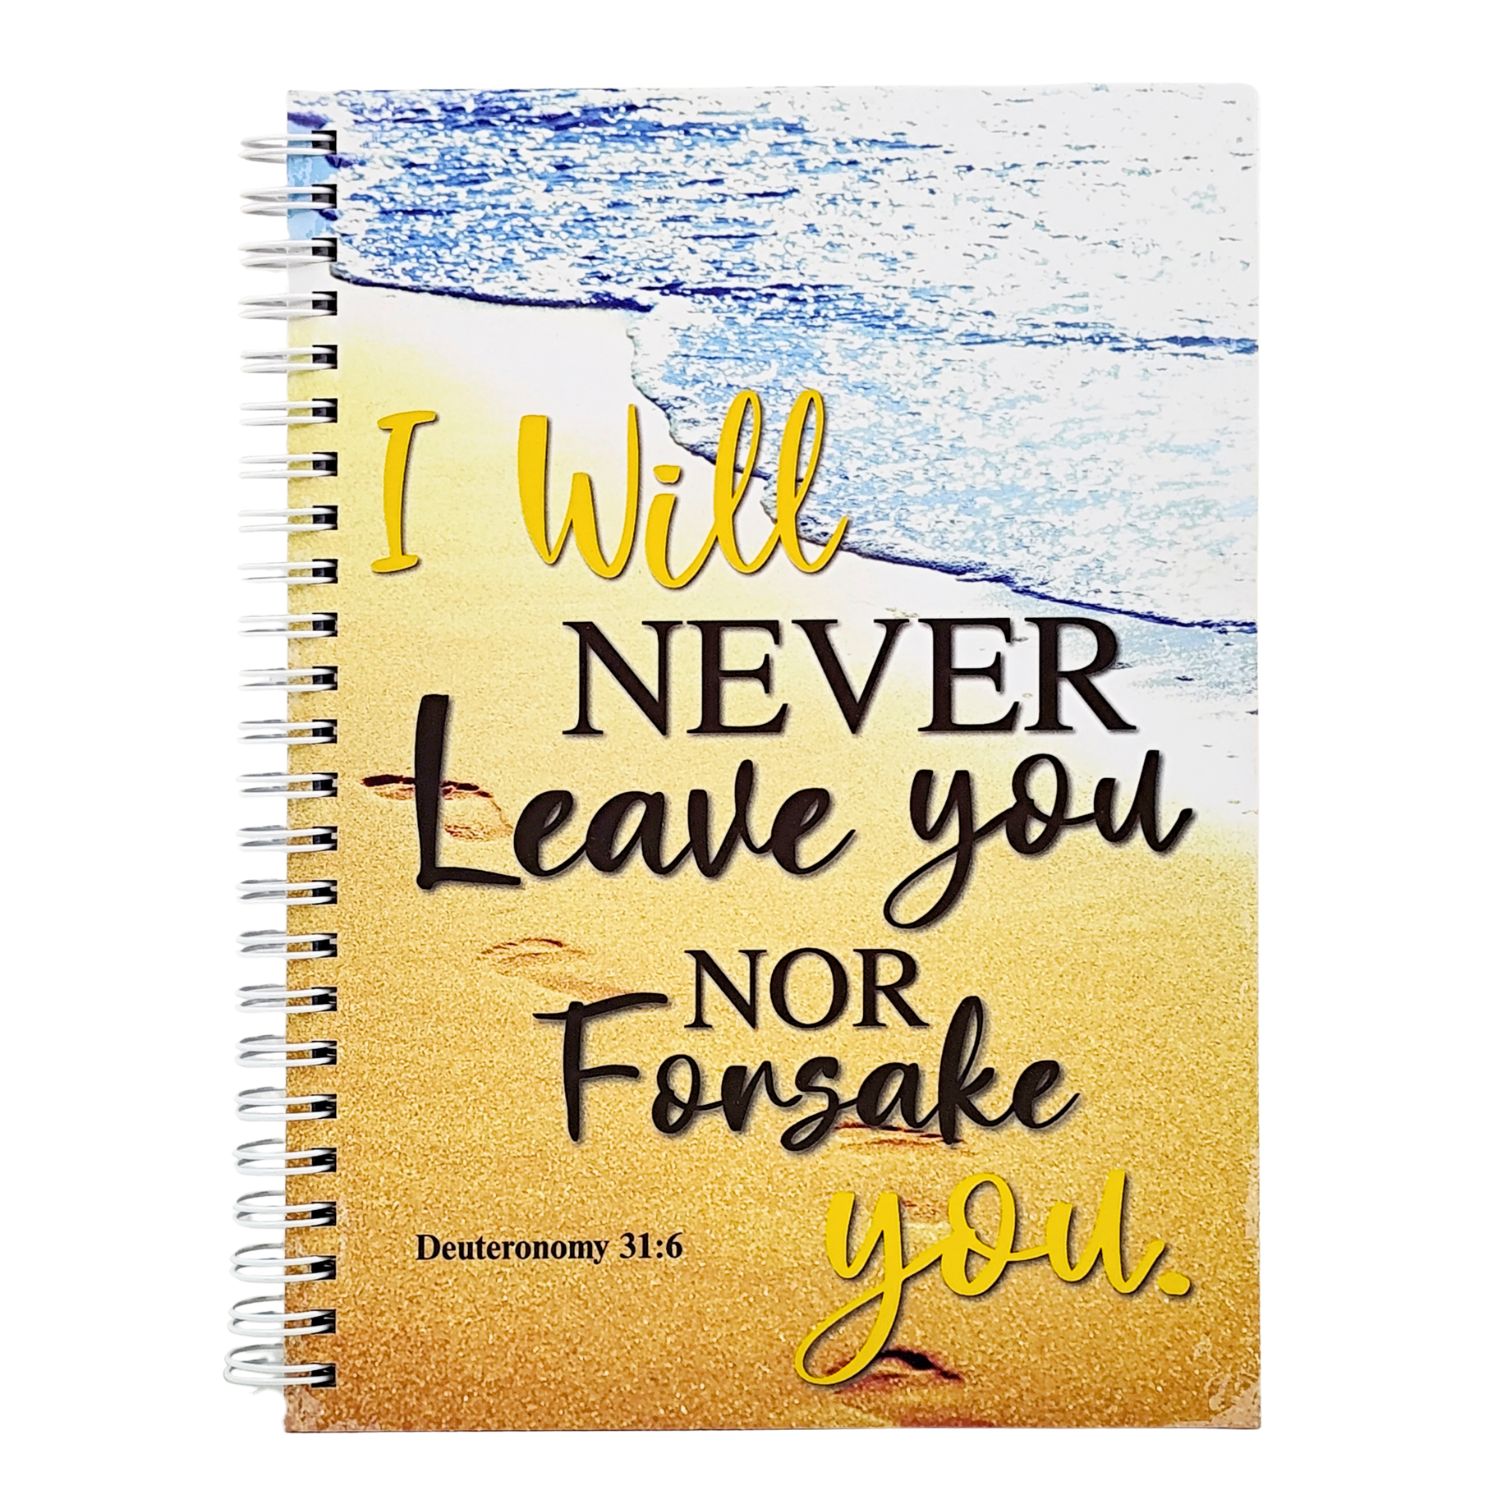 I Will
NEVER
Leave you
NOR
Forsake
you.
Deuteronomy 31:6